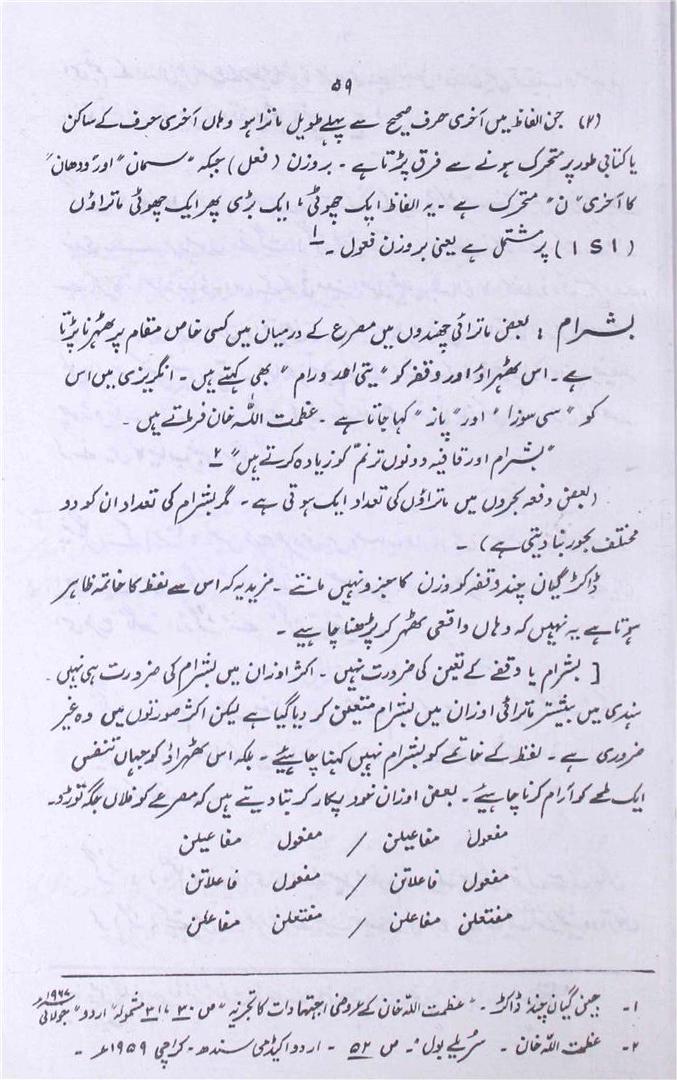 ۵۹
(۲) جن الفاظ میں آخری حرف صحیح سے پہلے طویل ماترا ہو وہاں آخری حرف کے ساکن
یا کتابی طور پر متحرک ہونے سے فرق پڑتا ہے ۔ بروزن (فعل) جبکہ "سمان" اور "ودھان"
کا آخری "ن" متحرک ہے ۔ یہ الفاظ ایک چھوٹی، ایک بڑی پھر ایک چھوٹی ماتراؤں
(ISI) پر مشتمل ہے یعنی بروزن فعول ۔ ۱
بشرام : بعض ماترائی چھندوں میں مصرع کے درمیان میں کسی خاص مقام پر ٹھہرنا پڑتا
ہے ۔ اس ٹھہراؤ اور وقفہ کو "یتی اور ورام" بھی کہتے ہیں ۔ انگریزی میں اس
کو "سی سوزا" اور "پاز" کہا جاتا ہے ۔ عظمت اللہ خان فرماتے ہیں ۔
"بشرام اور قافیہ دونوں ترنم کو زیادہ کرتے ہیں" ۲
(بعض دفعہ بحروں میں ماتراؤں کی تعداد ایک ہوتی ہے ۔ مگر بشرام کی تعداد ان کو دو
مختلف بحور بنا دیتی ہے) ۔
ڈاکٹر گیان چند وقفہ کو وزن کا جزو نہیں مانتے ۔ مزید یہ کہ اس سے لفظ کا خاتمہ ظاہر
ہوتا ہے یہ نہیں کہ وہاں واقعی ٹھہر کر پڑھنا چاہیے ۔
[ بشرام یا وقفے کے تعین کی ضرورت نہیں ۔ اکثر اوزان میں بشرام کی ضرورت ہی نہیں ۔
ہندی میں بیشتر ماترائی اوزان میں بسرام متعین کر دیا گیا ہے لیکن اکثر صورتوں میں وہ غیر
ضروری ہے ۔ لفظ کے خاتمے کو بشرام نہیں کہنا چاہیئے ۔ بلکہ اس ٹھہراؤ کو جہاں تنفس
ایک لمحے کو آرام کرنا چاہیئے ۔ بعض اوزان خود پکار کر بتا دیتے ہیں کہ مصرعے کو فلاں جگہ توڑ دو ۔
مفعول مفاعیلن / مفعول مفاعیلن
مفعول فاعلاتن / مفعول فاعلاتن
مفتعلن مفاعلن / مفتعلن مفاعلن
۱- جینی گیان چند، ڈاکٹر ۔ "عظمت اللہ خان کے عروضی اجتہادات کا تجزیہ" ص ۳۰، ۳۱ مشمولہ "اردو" جولائی ۱۹۶۷ء
۲- عظمت اللہ خان ۔ سریلے بول"۔ ص ۵۲ ۔ اردو اکیڈمی سندھ ۔ کراچی ۱۹۵۹ء ۔